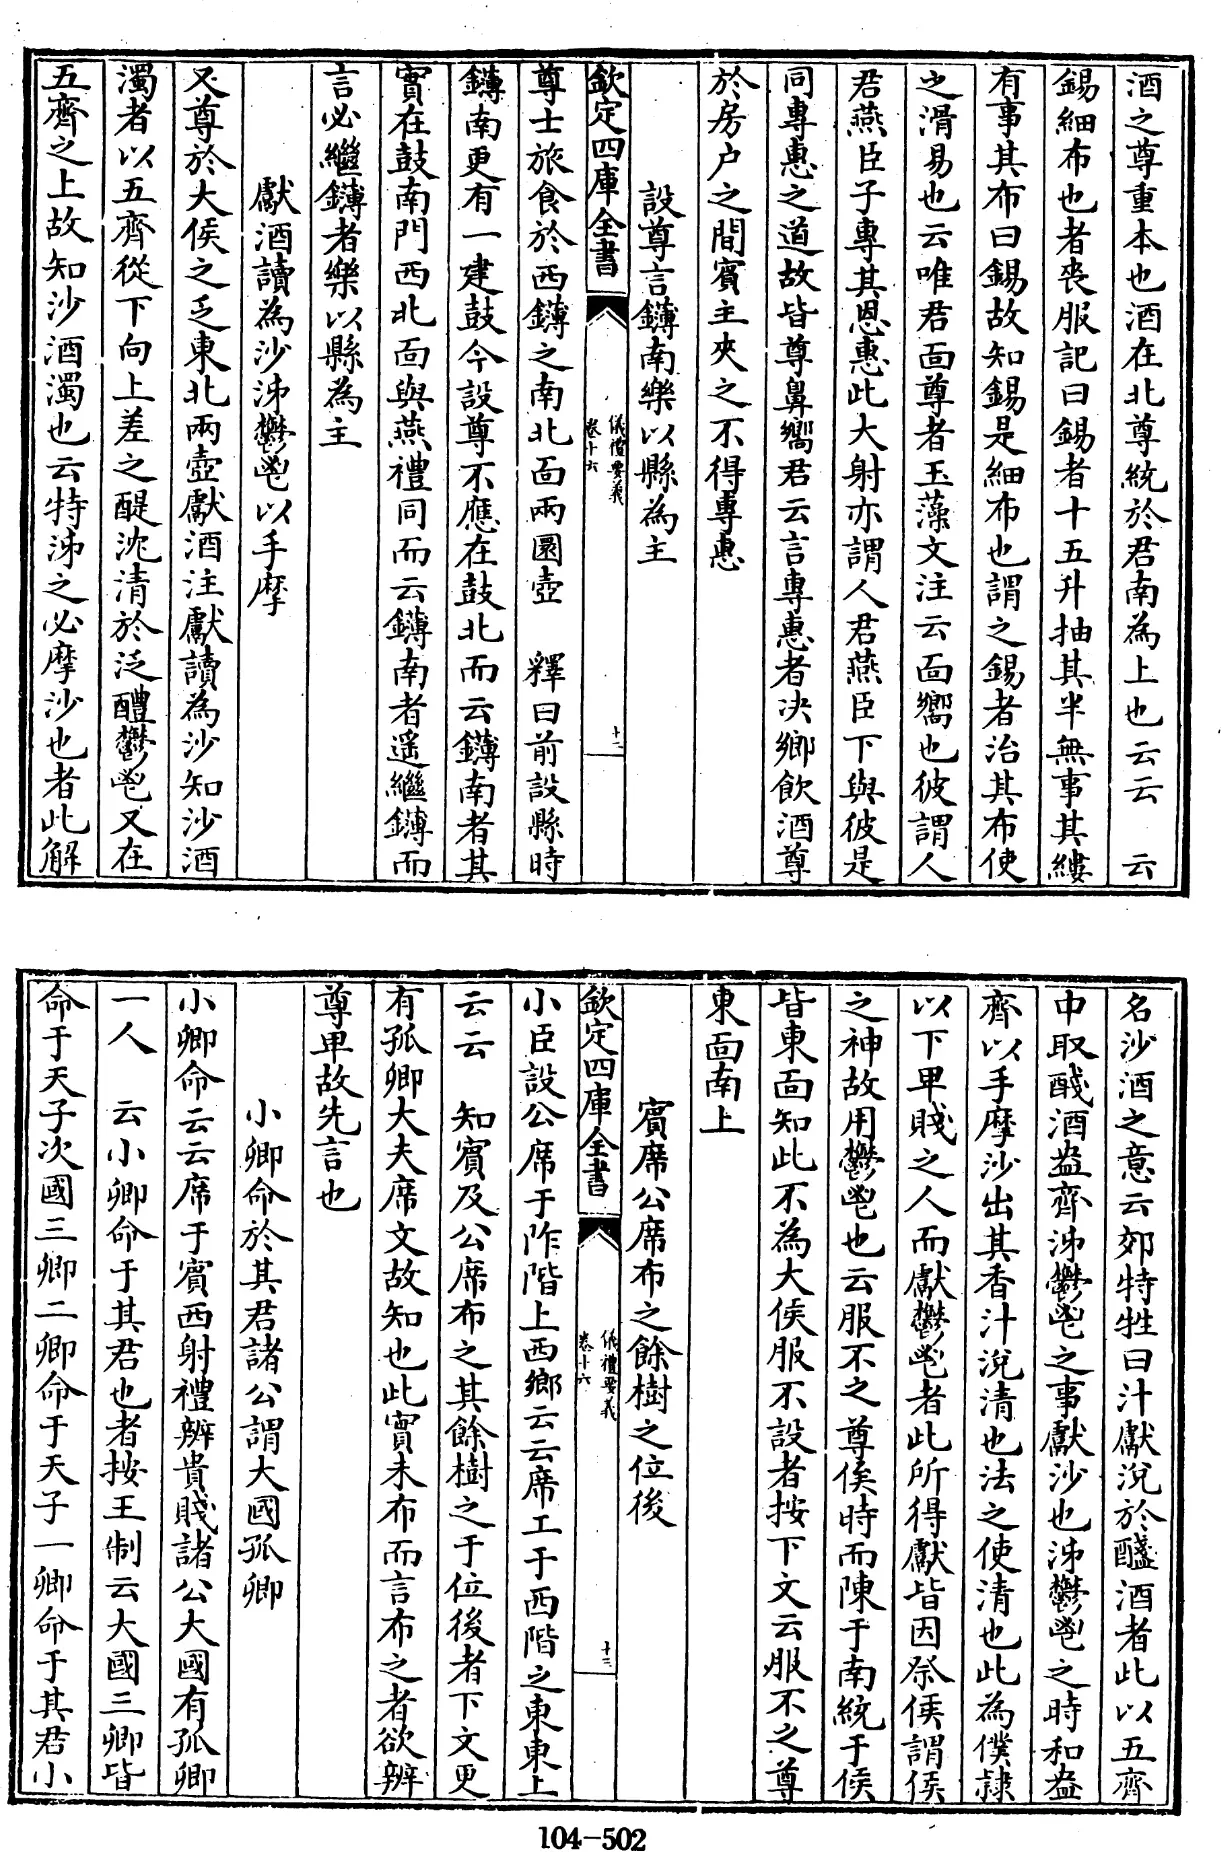 酒之尊重本也酒在北尊統於君南為上也云云　云
錫細布也者喪服記曰錫者十五升抽其半無事其縷
有事其布曰錫故知錫是細布也謂之錫者治其布使
之滑易也云唯君面尊者玉藻文注云面嚮也彼謂人
君燕臣子專其恩惠此大射亦謂人君燕臣下與彼是
同專惠之道故皆尊鼻嚮君云言專惠者決鄉飲酒尊
於房户之間賓主夾之不得專惠
設尊言鑮南樂以縣為主
欽定四庫全書
儀禮要義
卷十六
十二
尊士旅食於西鑮之南北面兩圜壺　釋曰前設縣時
鑮南更有一建鼓今設尊不應在鼓北而云鑮南者其
實在鼓南門西北面與燕禮同而云鑮南者遥繼鑮而
言必繼鑮者樂以縣為主
獻酒讀為沙沸鬱鬯以手摩
又尊於大侯之乏東北兩壺獻酒注獻讀為沙知沙酒
濁者以五齊從下向上差之醍沈清於泛醴鬱鬯又在
五齊之上故知沙酒濁也云特沸之必摩沙也者此解
名沙酒之意云郊特牲曰汁獻涚於醆酒者此以五齊
中取醆酒盎齊沸鬱鬯之事獻沙也沸鬱鬯之時和盎
齊以手摩沙出其香汁涚清也法之使清也此為僕隸
以下卑賤之人而獻鬱鬯者此所得獻皆因祭侯謂侯
之神故用鬱鬯也云服不之尊俟時而陳于南統于侯
皆東面知此不為大侯服不設者按下文云服不之尊
東面南上
賓席公席布之餘樹之位後
欽定四庫全書
儀禮要義
卷十六
十三
小臣設公席于阼階上西鄉云云席工于西階之東東上
云云　知賓及公席布之其餘樹之于位後者下文更
有孤卿大夫席文故知也此實未布而言布之者欲辨
尊卑故先言也
小卿命於其君諸公謂大國孤卿
小卿命云云席于賓西射禮辨貴賤諸公大國有孤卿
一人　云小卿命于其君也者按王制云大國三卿皆
命于天子次國三卿二卿命于天子一卿命于其君小
104-502